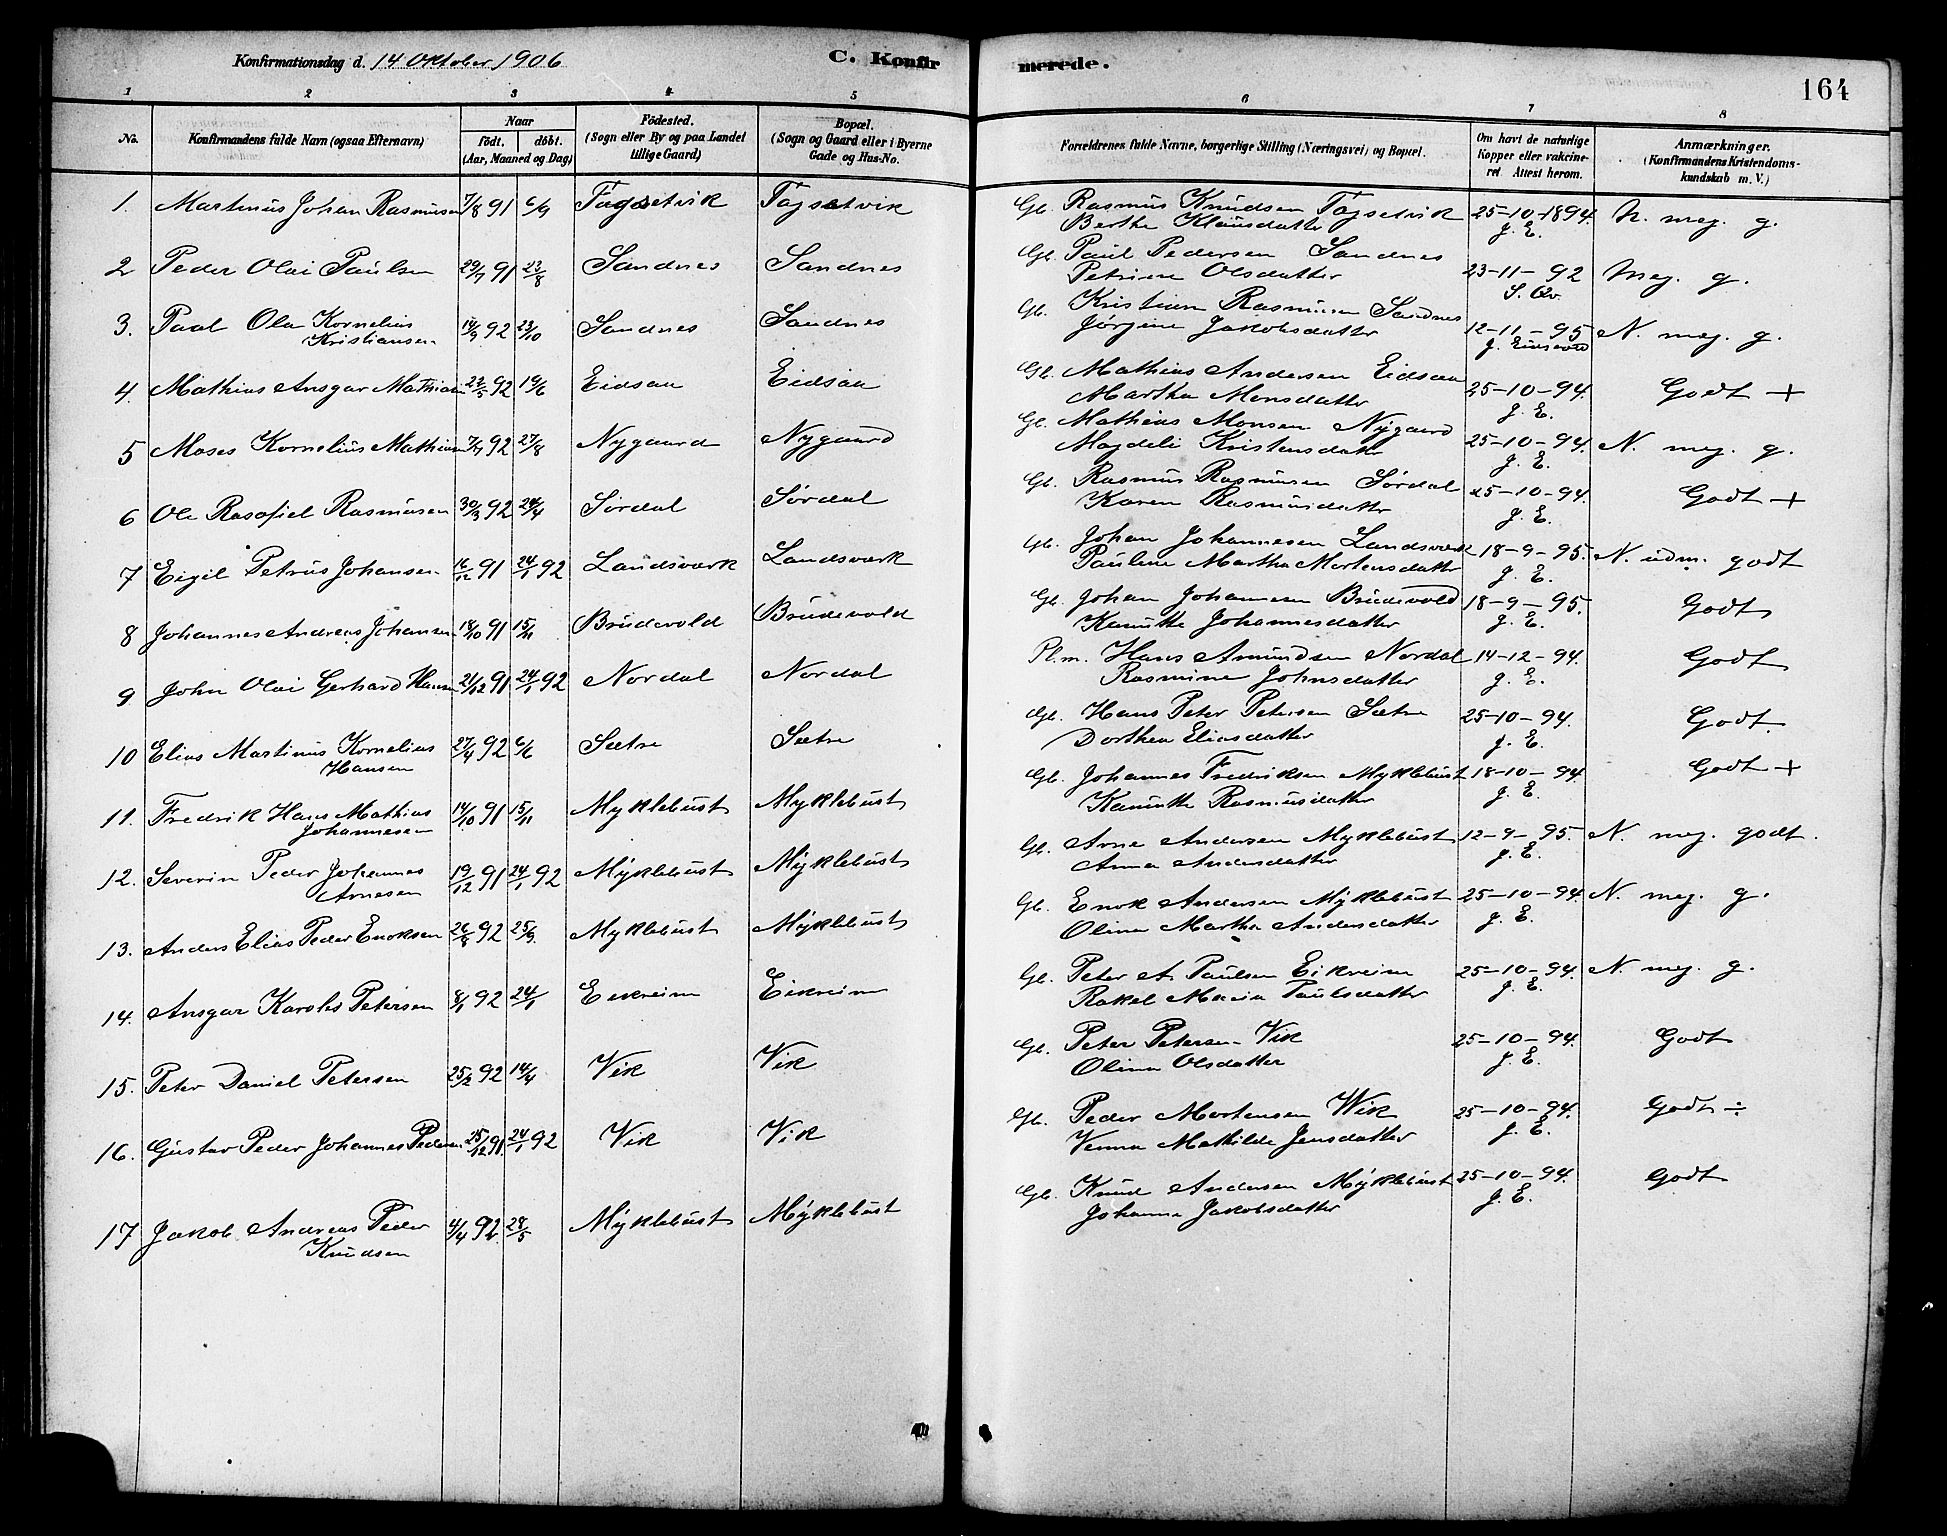 Konfirmationsdag d. 14 Oktober 1906
C. Konfirmerede.
164
1 2 3 4 5 6 7 8
No.
Konfirmandens fulde Navn (ogsaa Efternavn)
Naar
födt. döbt.
(Aar, Maaned og Dag)
Födested.
(Sogn eller By og paa Landet
tillige Gaard)
Bopæl.
(Sogn og Gaard eller i Byerne
Gade og Hus-No.
Forældrenes fulde Navne, borgerlige Stilling (Næringsvei) og Bopæl.
Om havt de naturlige
Kopper eller vakcine-
ret Attest herom.
Anmærkninger.
(Konfirmandens Kristendoms-
kundskab m. V.)
1. Martinus Johan Rasmusen 7/8 91 6/9 Fagsetvik Fagsetvik Gb. Rasmus Knudsen Fagsetvik 25-10-1894. N. meg. g.
Berthe Klausdatter J. E.
2 Peder Olai Paulsen 29/7 91 23/8 Sandnes Sandnes Gb. Paul Pedersen Sandnes 23-11-92 Meg. g.
Petrine Olsdatter S. Qv.
3. Paal Ola Kornelius 14/9 92 23/10 Sandnes Sandnes Gb. Kristian Rasmusen Sandnes 12-11-95 N. meg. g.
Kristiansen Jørgine Jakobsdatter
4. Mathias Ansgar Mathiasen 22/5 92 19/6 Eidsaa Eidsaa Gb. Mathias Andersen Eidsaa 25-10-94. Godt +
Martha Monsdatter J. E.
5 Moses Kornelius Mathiasen 7/7 92 27/8 Nygaard Nygaard Gb. Mathias Monsen Nygaard 25-10-94. N. meg. g.
Magdeli Kristensdatter J. E.
6 Ole Rasofiel Rasmusen 30/3 92 24/4 Sørdal Sørdal Gb. Rasmus Rasmusen Sørdal 25-10-94. Godt +
Karen Rasmusdatter J. E.
7 Eigil Petrus Johansen 16/12 91 24/1 92 Landsværk Landsværk Gb. Johan Johannesen Landsværk 18-9-95. N. udm. godt
Pauline Martha Mortensdatter J. E.
8 Johannes Andreas Johansen 18/10 91 15/11 Brudevold Brudevold Gb. Johan Johannesen Brudevold 18-9-95. Godt
Kanutte Johannesdatter J. E.
9 John Olai Gerhard Hansen 21/12 91 24/1 92 Nordal Nordal Pl.m. Hans Amundsen Nordal 14-12-94. Godt
Rasmine Johnsdatter J. E.
10 Elias Martinus Kornelius 27/4 92 6/6 Sætre Sætre Gb. Hans Peter Petersen Sætre 25-10-94. Godt
Hansen Dorthea Eliasdatter J. E.
11. Fredrik Hans Mathias 14/10 91 15/11 Myklebust Myklebust Gb. Johannes Fredriksen Myklebust 18-10-94. Godt +
Johannesen Kanutte Rasmusdatter J. E.
12. Severin Peder Johannes 19/12 91 24/1 92 Myklebust Myklebust Gb. Arne Andersen Myklebust 12-9-95. N. meg. godt.
Arnesen Anna Andersdatter J. E.
13. Anders Elias Peder Enoksen 26/8 92 25/9. Myklebust Myklebust Gb. Enok Andersen Myklebust 25-10-94. N. meg. g.
Olina Martha Andersdatter J. E.
14. Ansgar Karolus Petersen 8/1 92 24/1 Eikreim Eikreim Gb. Peter A. Paulsen Eikreim 25-10-94. N. meg. g.
Rakel Maria Paulsdatter J. E.
15. Peter Daniel Petersen 25/2 92 14/4 Vik Vik Gb. Peter Petersen Vik 25-10-94. Godt
Olina Olsdatter J. E.
16. Gustav Peder Johannes Pedersen 25/12 91. 24/1 92 Vik Vik Gb. Peder Mortensen Wik 25-10-94. Godt ÷
Venna Mathilde Jensdatter J. E.
17 Jakob Andreas Peder 4/4 92. 28/5 Myklebust Myklebust Gb. Knud Andersen Myklebust 25-10-94. Godt
Knudsen Johanna Jakobsdatter J. E.